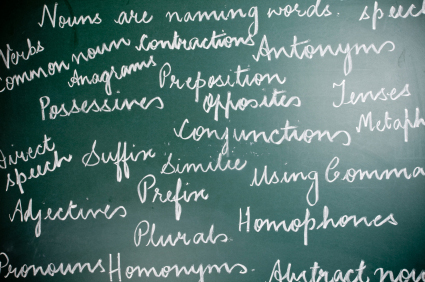 Nouns are naming words. speech
Verbs
Common noun Contractions Antonyms
Anagrams Preposition
Possessives Opposites Tenses
Conjunctions Metaph
Direct
speech Suffix Similie Using Comma
Prefix
Adjectives Homophones
Plurals
Pronouns Homonyms. Abstract noun